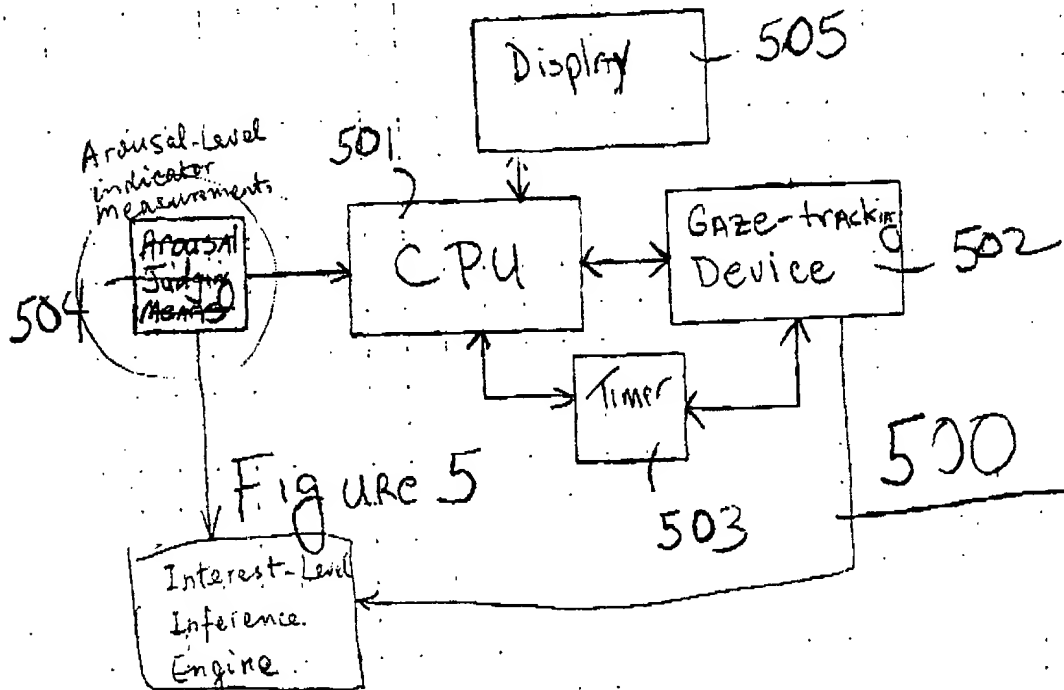 Display
505
Arousal-Level
indicator
measurements
501
Arousal-
Judging
Means
CPU
Gaze-tracking
Device
502
504
Timer
500
Figure 5
503
Interest-Level
Inference
Engine